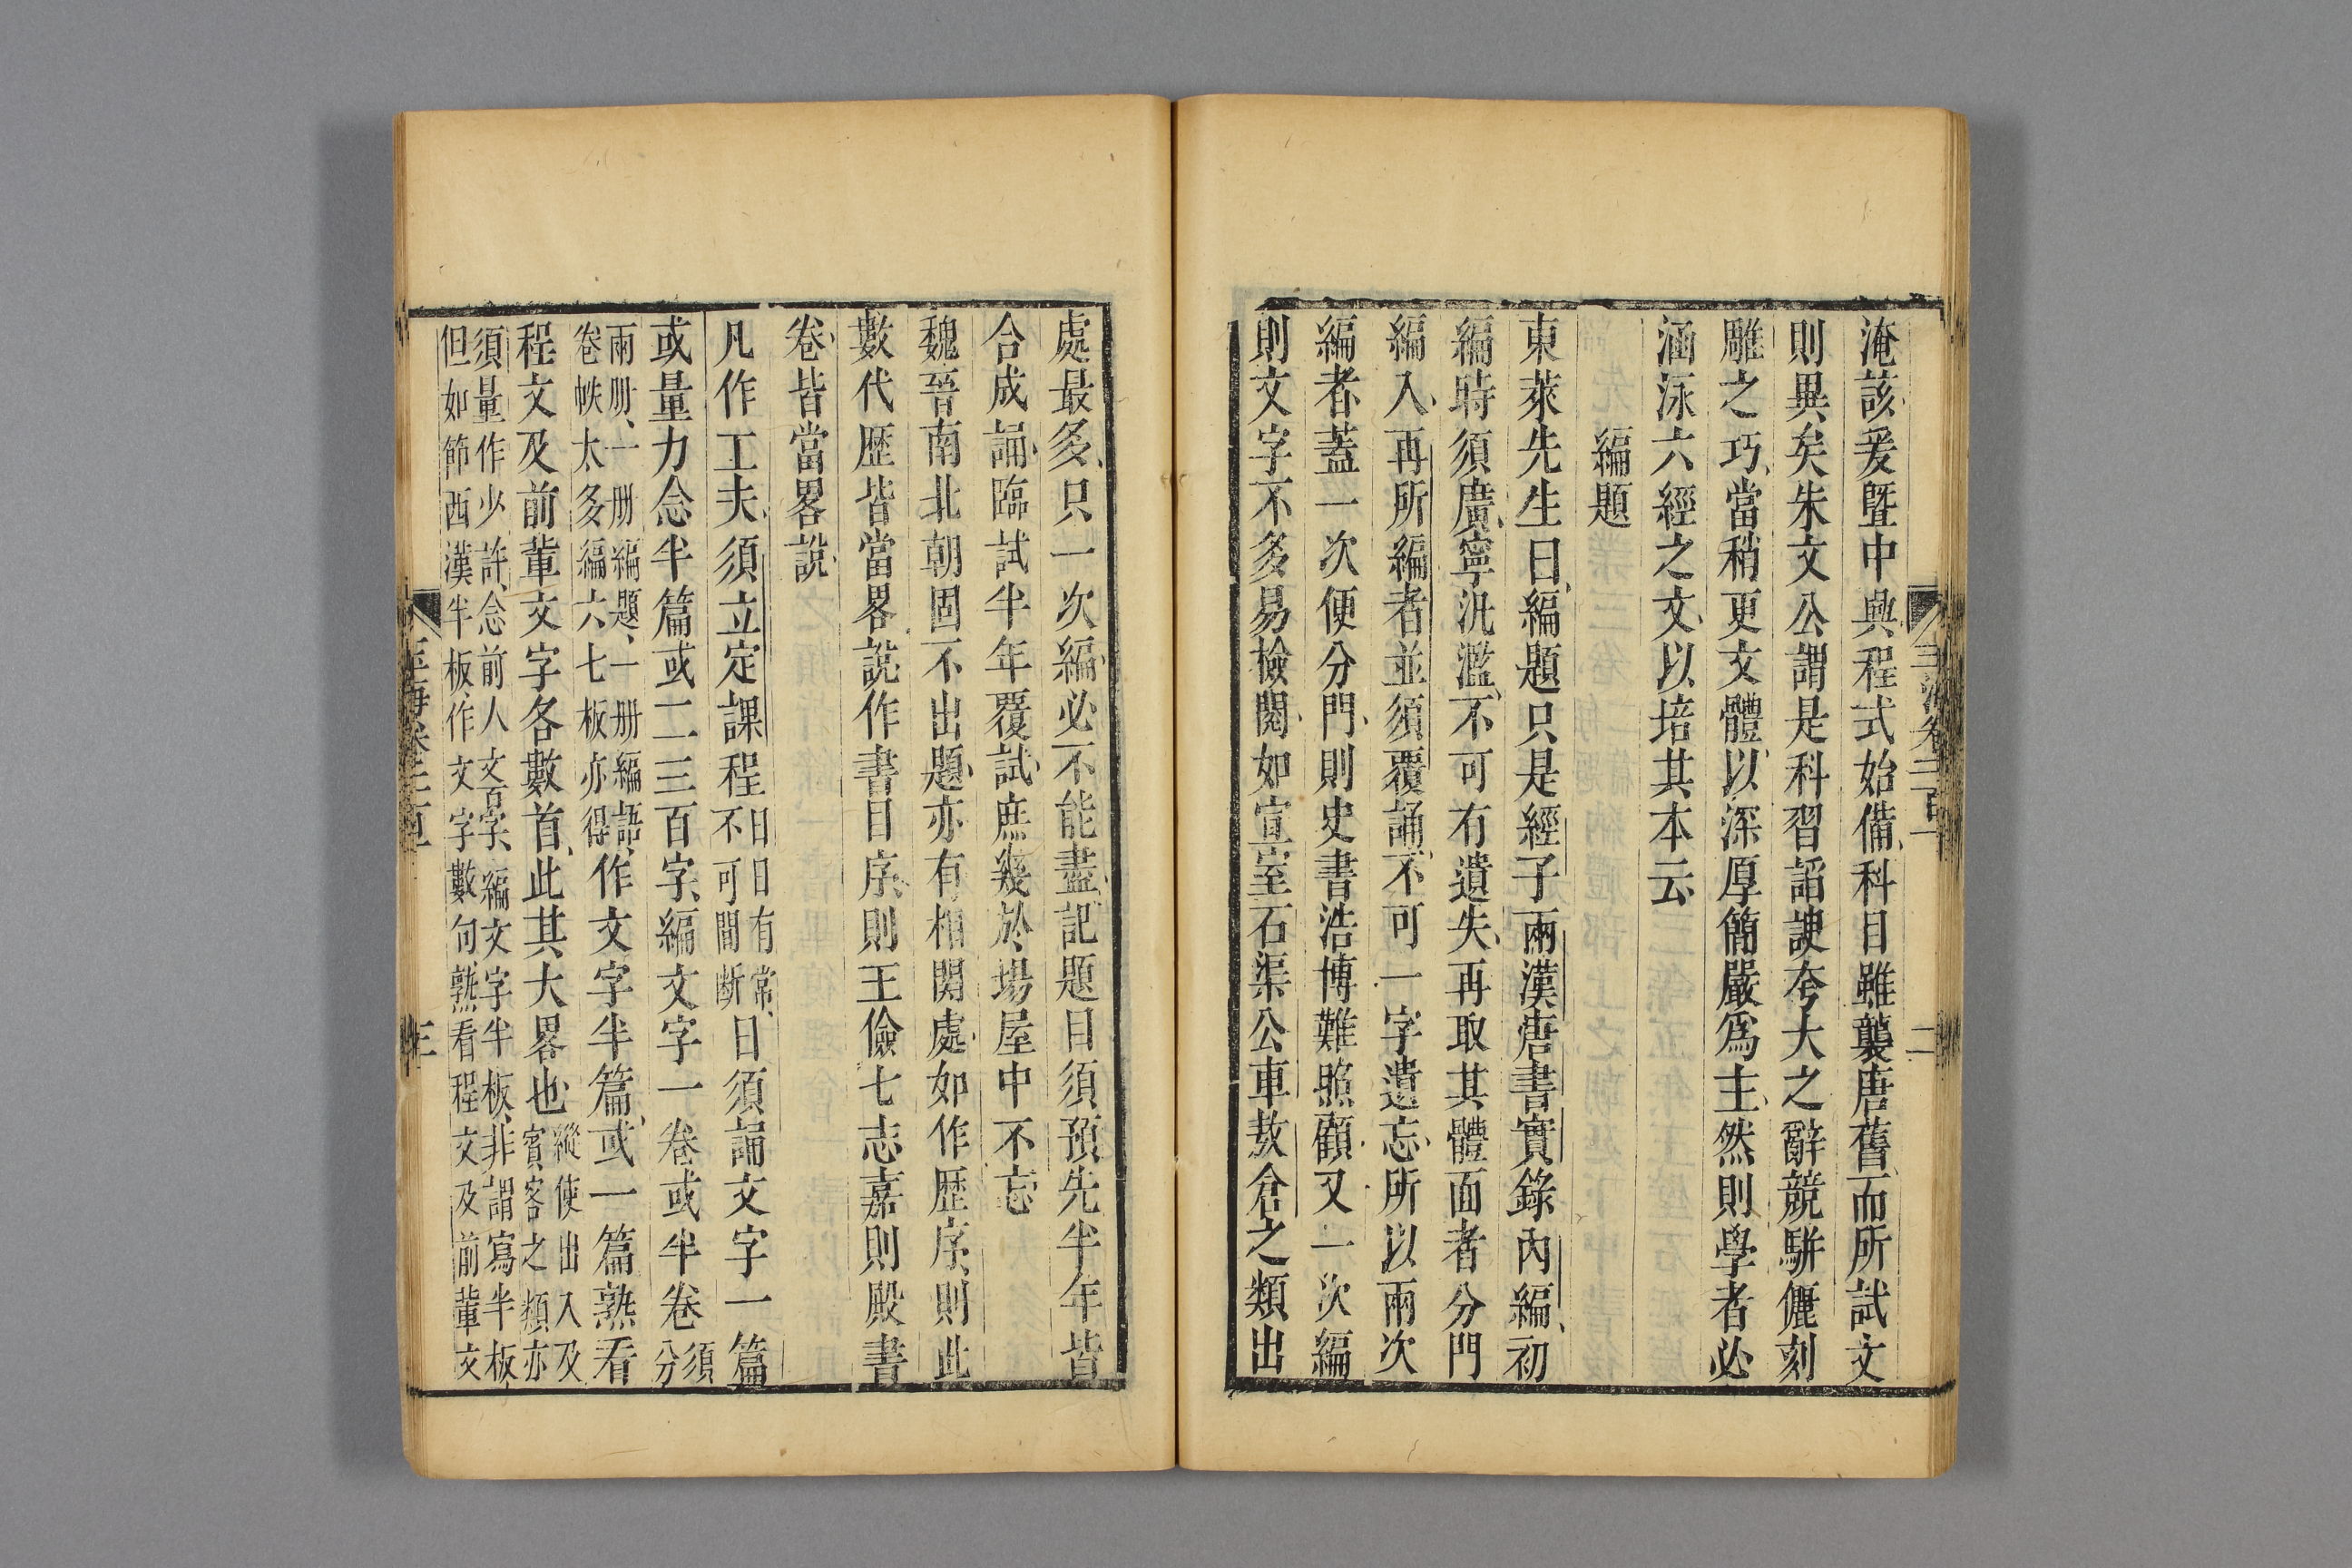 淹該爰曁中興程式始備科目雖襲唐舊而所試文
則異矣朱文公謂是科習諂諛夸大之辭競駢儷刻
雕之巧當稍更文體以深厚簡嚴爲主然則學者必
涵泳六經之文以培其本云
編題
東萊先生曰編題只是經子兩漢唐書實錄內編初
編時須廣寧汎濫不可有遺失再取其體面者分門
編入再所編者並須覆誦不可一字遺忘所以兩次
編者蓋一次便分門則史書浩博難照顧又一次編
則文字不多易檢閱如宣室石渠公車敖倉之類出
玉海卷二百一
二
處最多只一次編必不能盡記題目須預先半年皆
合成誦臨試半年覆試庶幾於場屋中不忘
魏晉南北朝固不出題亦有相關處如作歷序則此
數代歷皆當畧說作書目序則王儉七志嘉則殿書
卷皆當畧說
凡作工夫須立定課程日日有常不可間斷日須誦文字一篇
或量力念半篇或二三百字編文字一卷或半卷須分
兩册一册編題一册編語卷帙太多編六七板亦得作文字半篇或一篇熟看
程文及前輩文字各數首此其大畧也縱使出入及賓客之類亦
須量作少許念前人文百字編文字半板非謂寫半板
但如節西漢半板作文字數句熟看程文及前輩文
玉海卷二百一
三